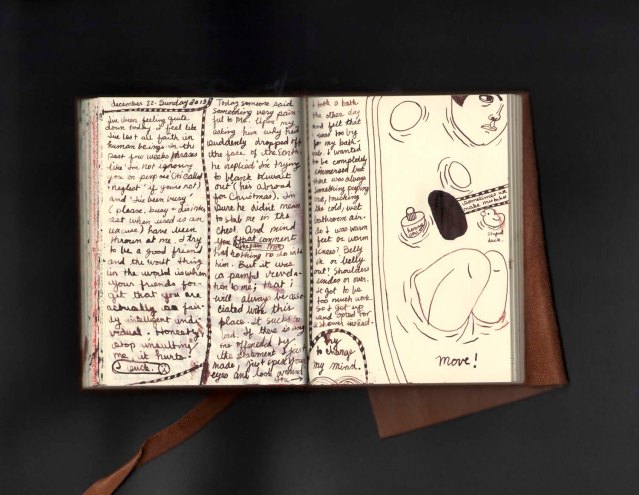 december 22. Sunday 2013
I've been feeling quite
down today. I feel like
I've lost all faith in
human beings. in the
past few weeks phrases
like 'I'm not ignoring
you on purpose' (it's called
'neglect' if you're not)
and 'I've been busy'
(please. busy = disinter-
est when used as an
excuse) have been
thrown at me. I try
to be a good friend
and the worst thing
in the world is when
your friends for-
get that you are
actually a fair-
ly intelligent indi-
vidual. Honestly
stop insulting
me, it hurts.
I suck.
Today someone said
something very pain-
ful to me. Upon my
asking him why he'd
suddenly dropped off
the face of the Earth,
he replied 'I'm trying
to blank Kuwait
out' (he's abroad
for Christmas). I'm
sure he didn't mean
to stab me in the
chest. And mind
you, that comment
had nothing to do with
him. But it was
a painful revela-
tion to me; that I
will always be asso-
ciated with this
place. it sucks so
bad. If there is any
one offended by
the statement I just
made, just open your
eyes and look around
you
I took a bath
the other day
and felt that
I was too big
for my bath
tub. I wanted
to be completely
immersed but
there was always
something peeping
out, touching
the cold, wet
bathroom air.
So I was warm
feet or warm
knees? Belly
in or belly
out? Shoulders
under or over.
It got to be
too much work
so I got up
and opted for
a shower instead.
Try
to change
my mind.
sometimes I
make mistakes
stupid
duck.
move!